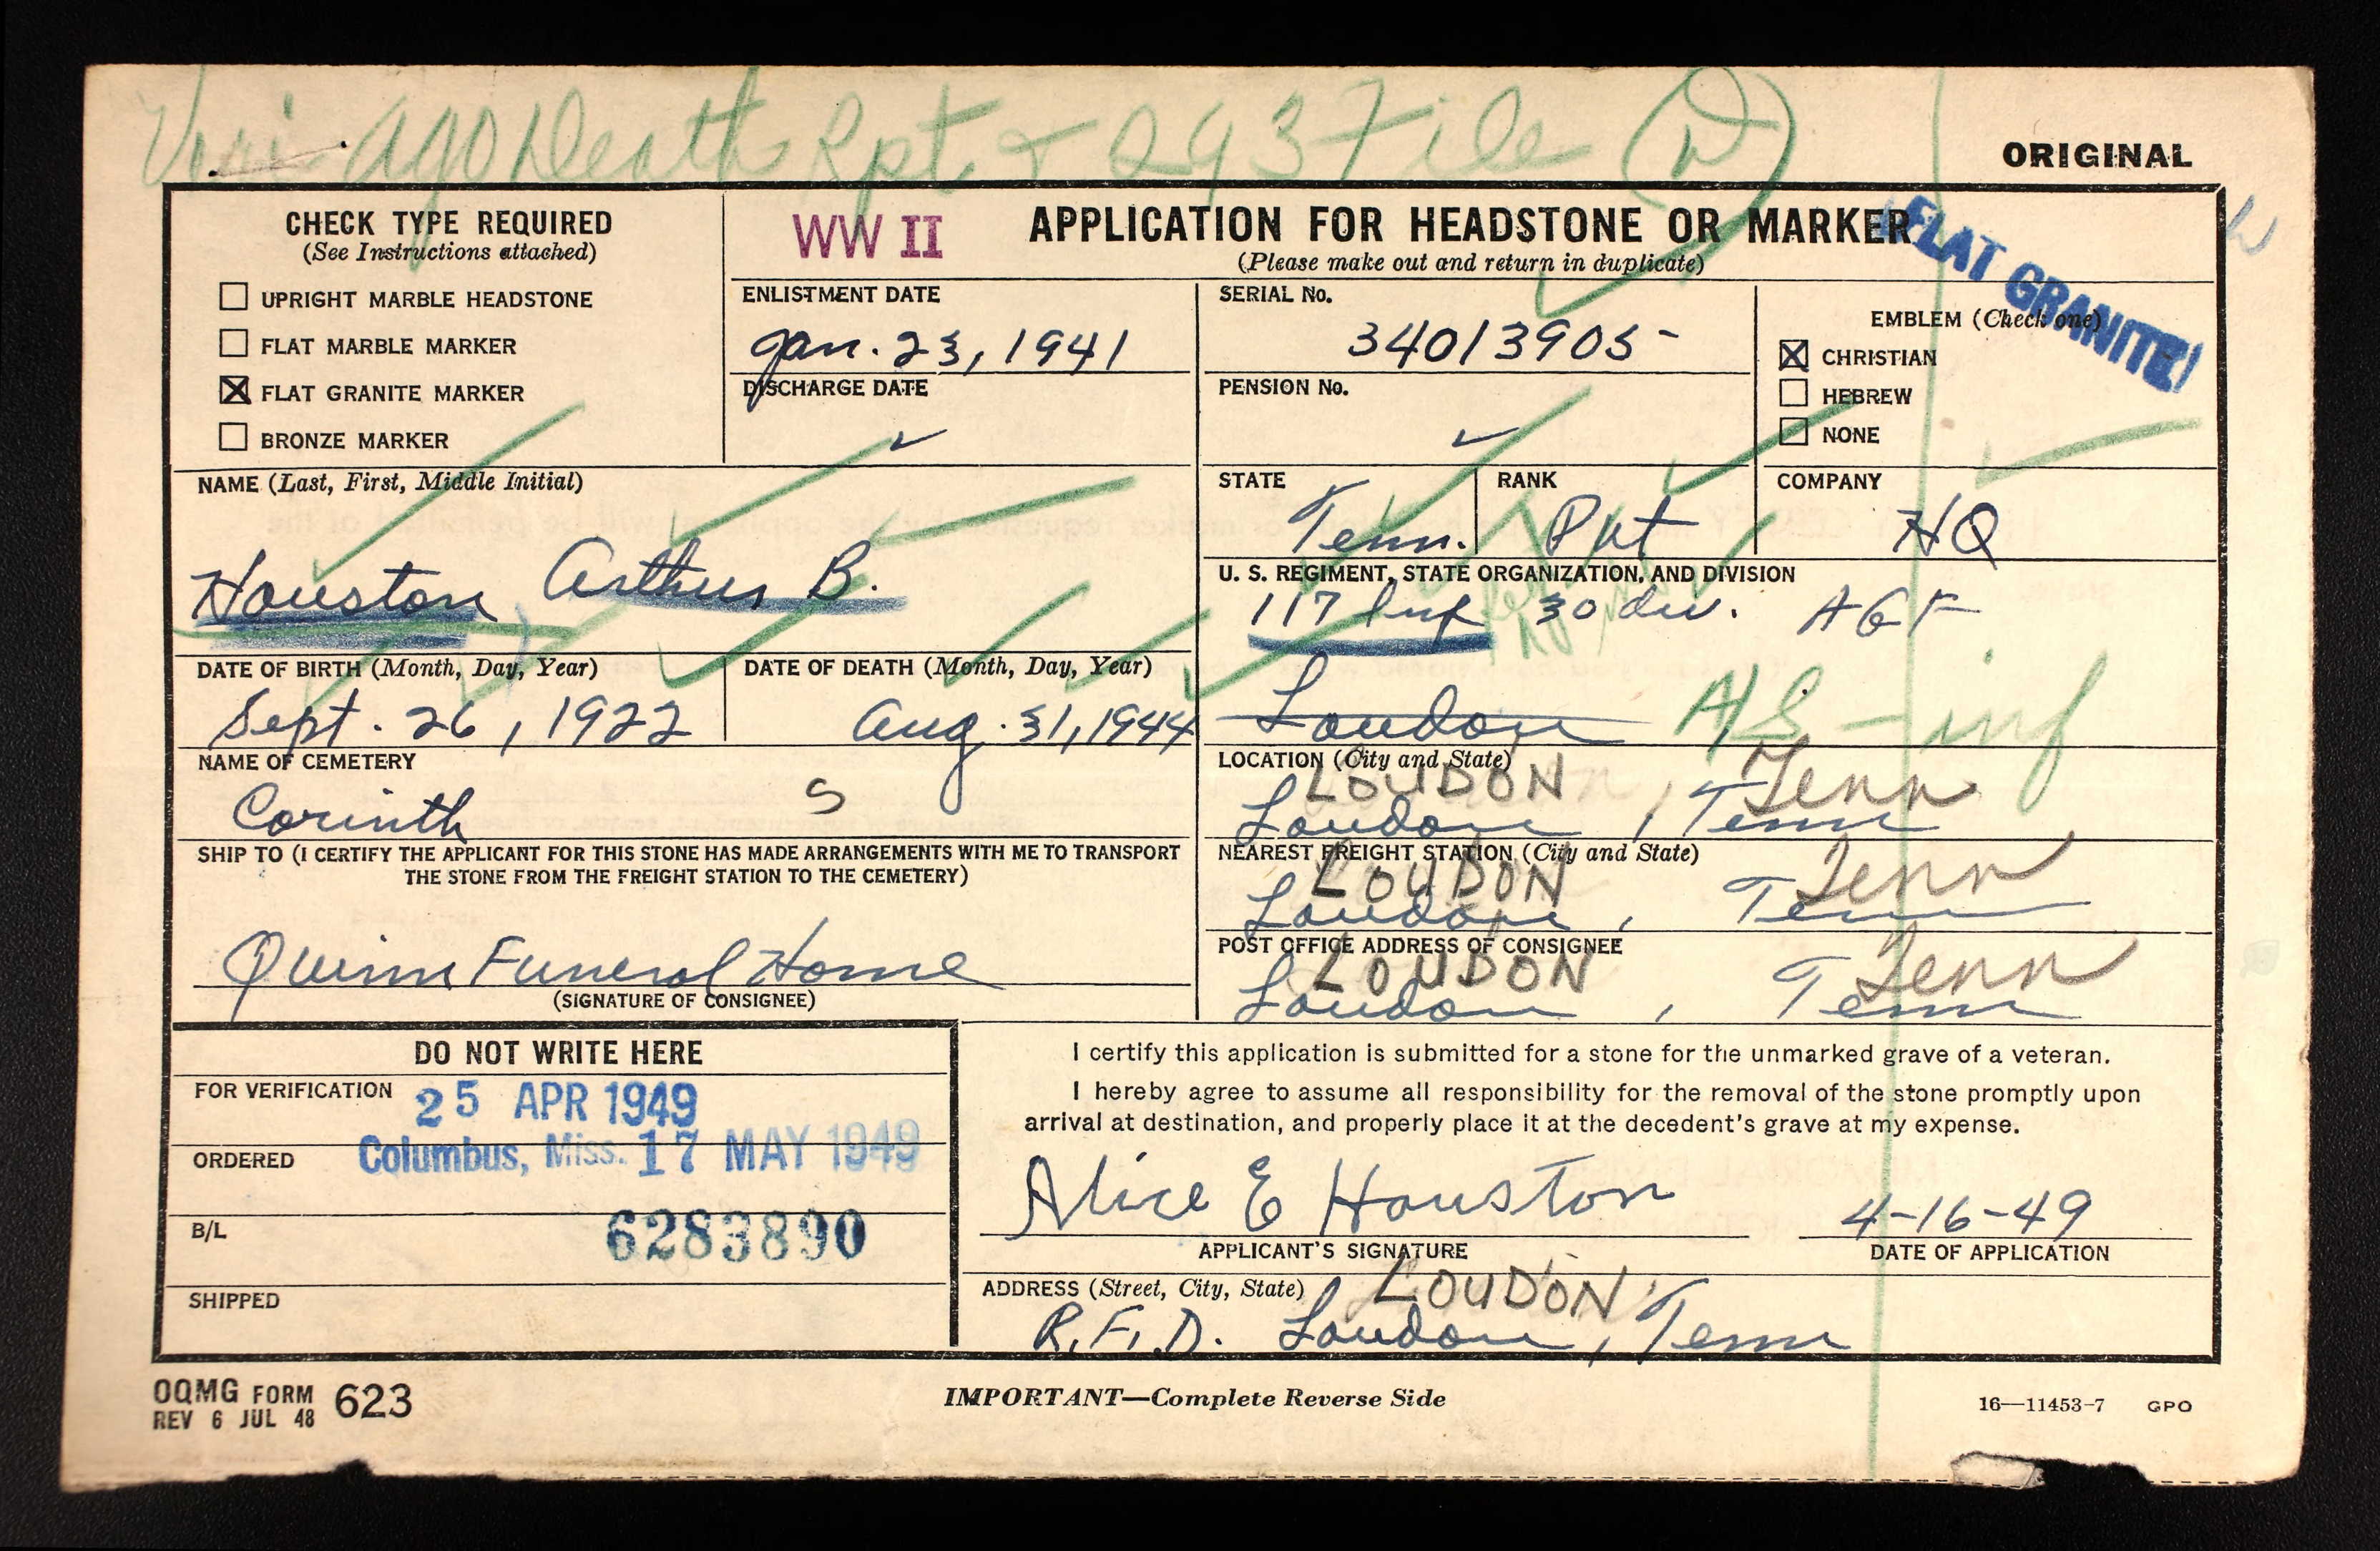 Veri- AGO Death Rpt. & 293 File (D)
ORIGINAL
CHECK TYPE REQUIRED
(See Instructions attached)
☐ UPRIGHT MARBLE HEADSTONE
☐ FLAT MARBLE MARKER
☒ FLAT GRANITE MARKER
☐ BRONZE MARKER
WW II
APPLICATION FOR HEADSTONE OR MARKER
(Please make out and return in duplicate)
FLAT GRANITE
ENLISTMENT DATE
Jan. 23, 1941
DISCHARGE DATE
✓
SERIAL No.
34013905-
PENSION No.
✓
EMBLEM (Check one)
☒ CHRISTIAN
☐ HEBREW
☐ NONE
NAME (Last, First, Middle Initial)
Houston Arthur B.
STATE
Tenn.
RANK
Pvt
COMPANY
HQ
U. S. REGIMENT, STATE ORGANIZATION, AND DIVISION
117 Inf 30 div. AGF
Loudon A/S - inf
DATE OF BIRTH (Month, Day, Year)
Sept. 26, 1922
DATE OF DEATH (Month, Day, Year)
Aug. 31, 1944
NAME OF CEMETERY
Corinth S
LOCATION (City and State)
LOUDON Tenn
Loudon, Tenn
SHIP TO (I CERTIFY THE APPLICANT FOR THIS STONE HAS MADE ARRANGEMENTS WITH ME TO TRANSPORT
THE STONE FROM THE FREIGHT STATION TO THE CEMETERY)
Quinn Funeral Home
(SIGNATURE OF CONSIGNEE)
NEAREST FREIGHT STATION (City and State)
LOUDON Tenn
Loudon, Tenn
POST OFFICE ADDRESS OF CONSIGNEE
LOUDON Tenn
Loudon, Tenn
DO NOT WRITE HERE
FOR VERIFICATION
25 APR 1949
ORDERED
Columbus, Miss. 17 MAY 1949
B/L
6283890
SHIPPED
I certify this application is submitted for a stone for the unmarked grave of a veteran.
I hereby agree to assume all responsibility for the removal of the stone promptly upon
arrival at destination, and properly place it at the decedent's grave at my expense.
Alice E Houston
APPLICANT'S SIGNATURE
4-16-49
DATE OF APPLICATION
ADDRESS (Street, City, State)
LOUDON
R.F.D. Loudon, Tenn
OQMG FORM 623
REV 6 JUL 48
IMPORTANT—Complete Reverse Side
16—11453-7 GPO